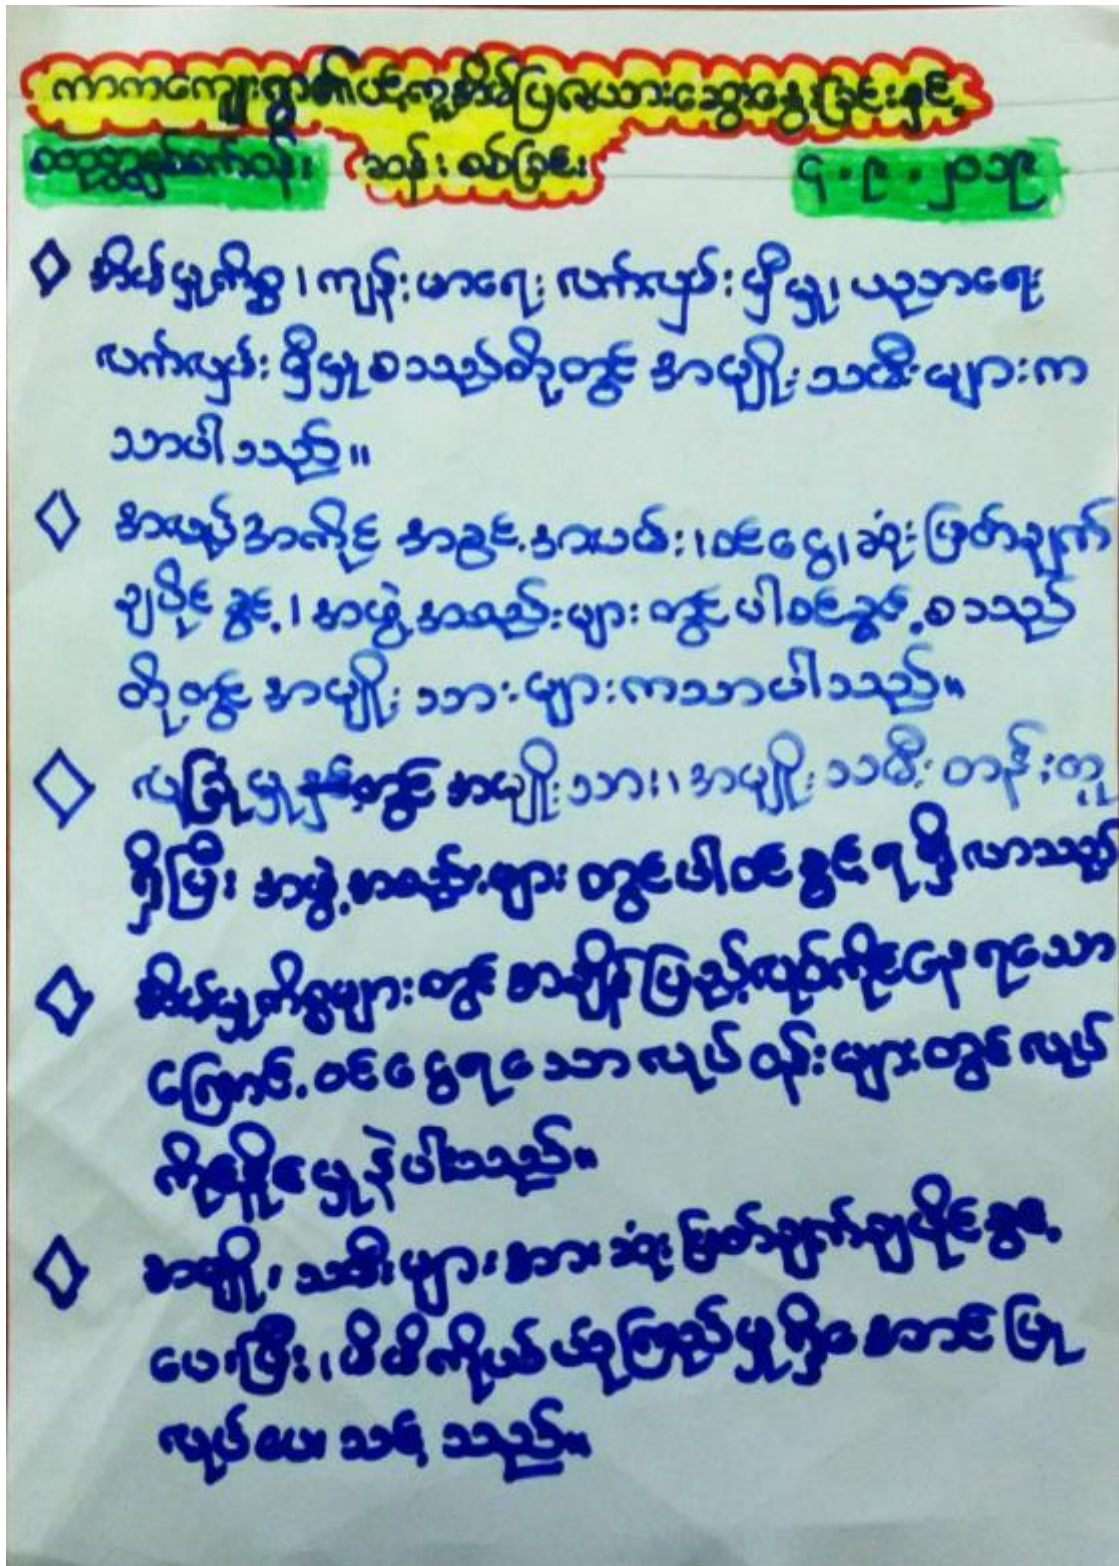 ကာကကျေးရွာ၏ ပင့်ကူအိမ်ပြဇယားဆွေးနွေးခြင်းနှင့်
စတုတ္ထနှစ်စက်ဝန်း ဆန်းစစ်ခြင်း ၄.၉.၂၀၁၉
အိမ်မှုကိစ္စ၊ ကျန်းမာရေး လက်လှမ်းမှီမှု၊ ပညာရေး
လက်လှမ်းမှီမှု စသည်တို့တွင် အမျိုးသမီးများက
သာပါသည်။
အလုပ်အကိုင် အခွင့်အလမ်း၊ ဝင်ငွေ၊ ဆုံးဖြတ်ချက်
ချပိုင်ခွင့်၊ အဖွဲ့အစည်းများတွင် ပါဝင်ခွင့် စသည်
တို့တွင် အမျိုးသားများကသာပါသည်။
လုံခြုံမှုနှင့်တွင် အမျိုးသား၊ အမျိုးသမီး တန်းတူ
ရှိပြီး အဖွဲ့အစည်းများတွင်ပါဝင်ခွင့်ရရှိလာသည်
အိမ်မှုကိစ္စများတွင် အချိန်ပြည့်လုပ်ကိုင်နေရသော
ကြောင့် ဝင်ငွေရသောလုပ်ငန်းများတွင် လုပ်
ကိုင်နိုင်မှုနဲပါးသည်။
အမျိုးသမီးများအား ဆုံးဖြတ်ချက်ချပိုင်ခွင့်
ပေးပြီး၊ မိမိကိုယ်ယုံကြည်မှုရှိအောင် ပြု
လုပ်ပေးသင့်သည်။